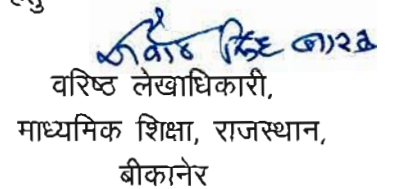 हेतु
सिंह
वरिष्ठ लेखाधिकारी,
माध्यमिक शिक्षा, राजस्थान,
बीकानेर